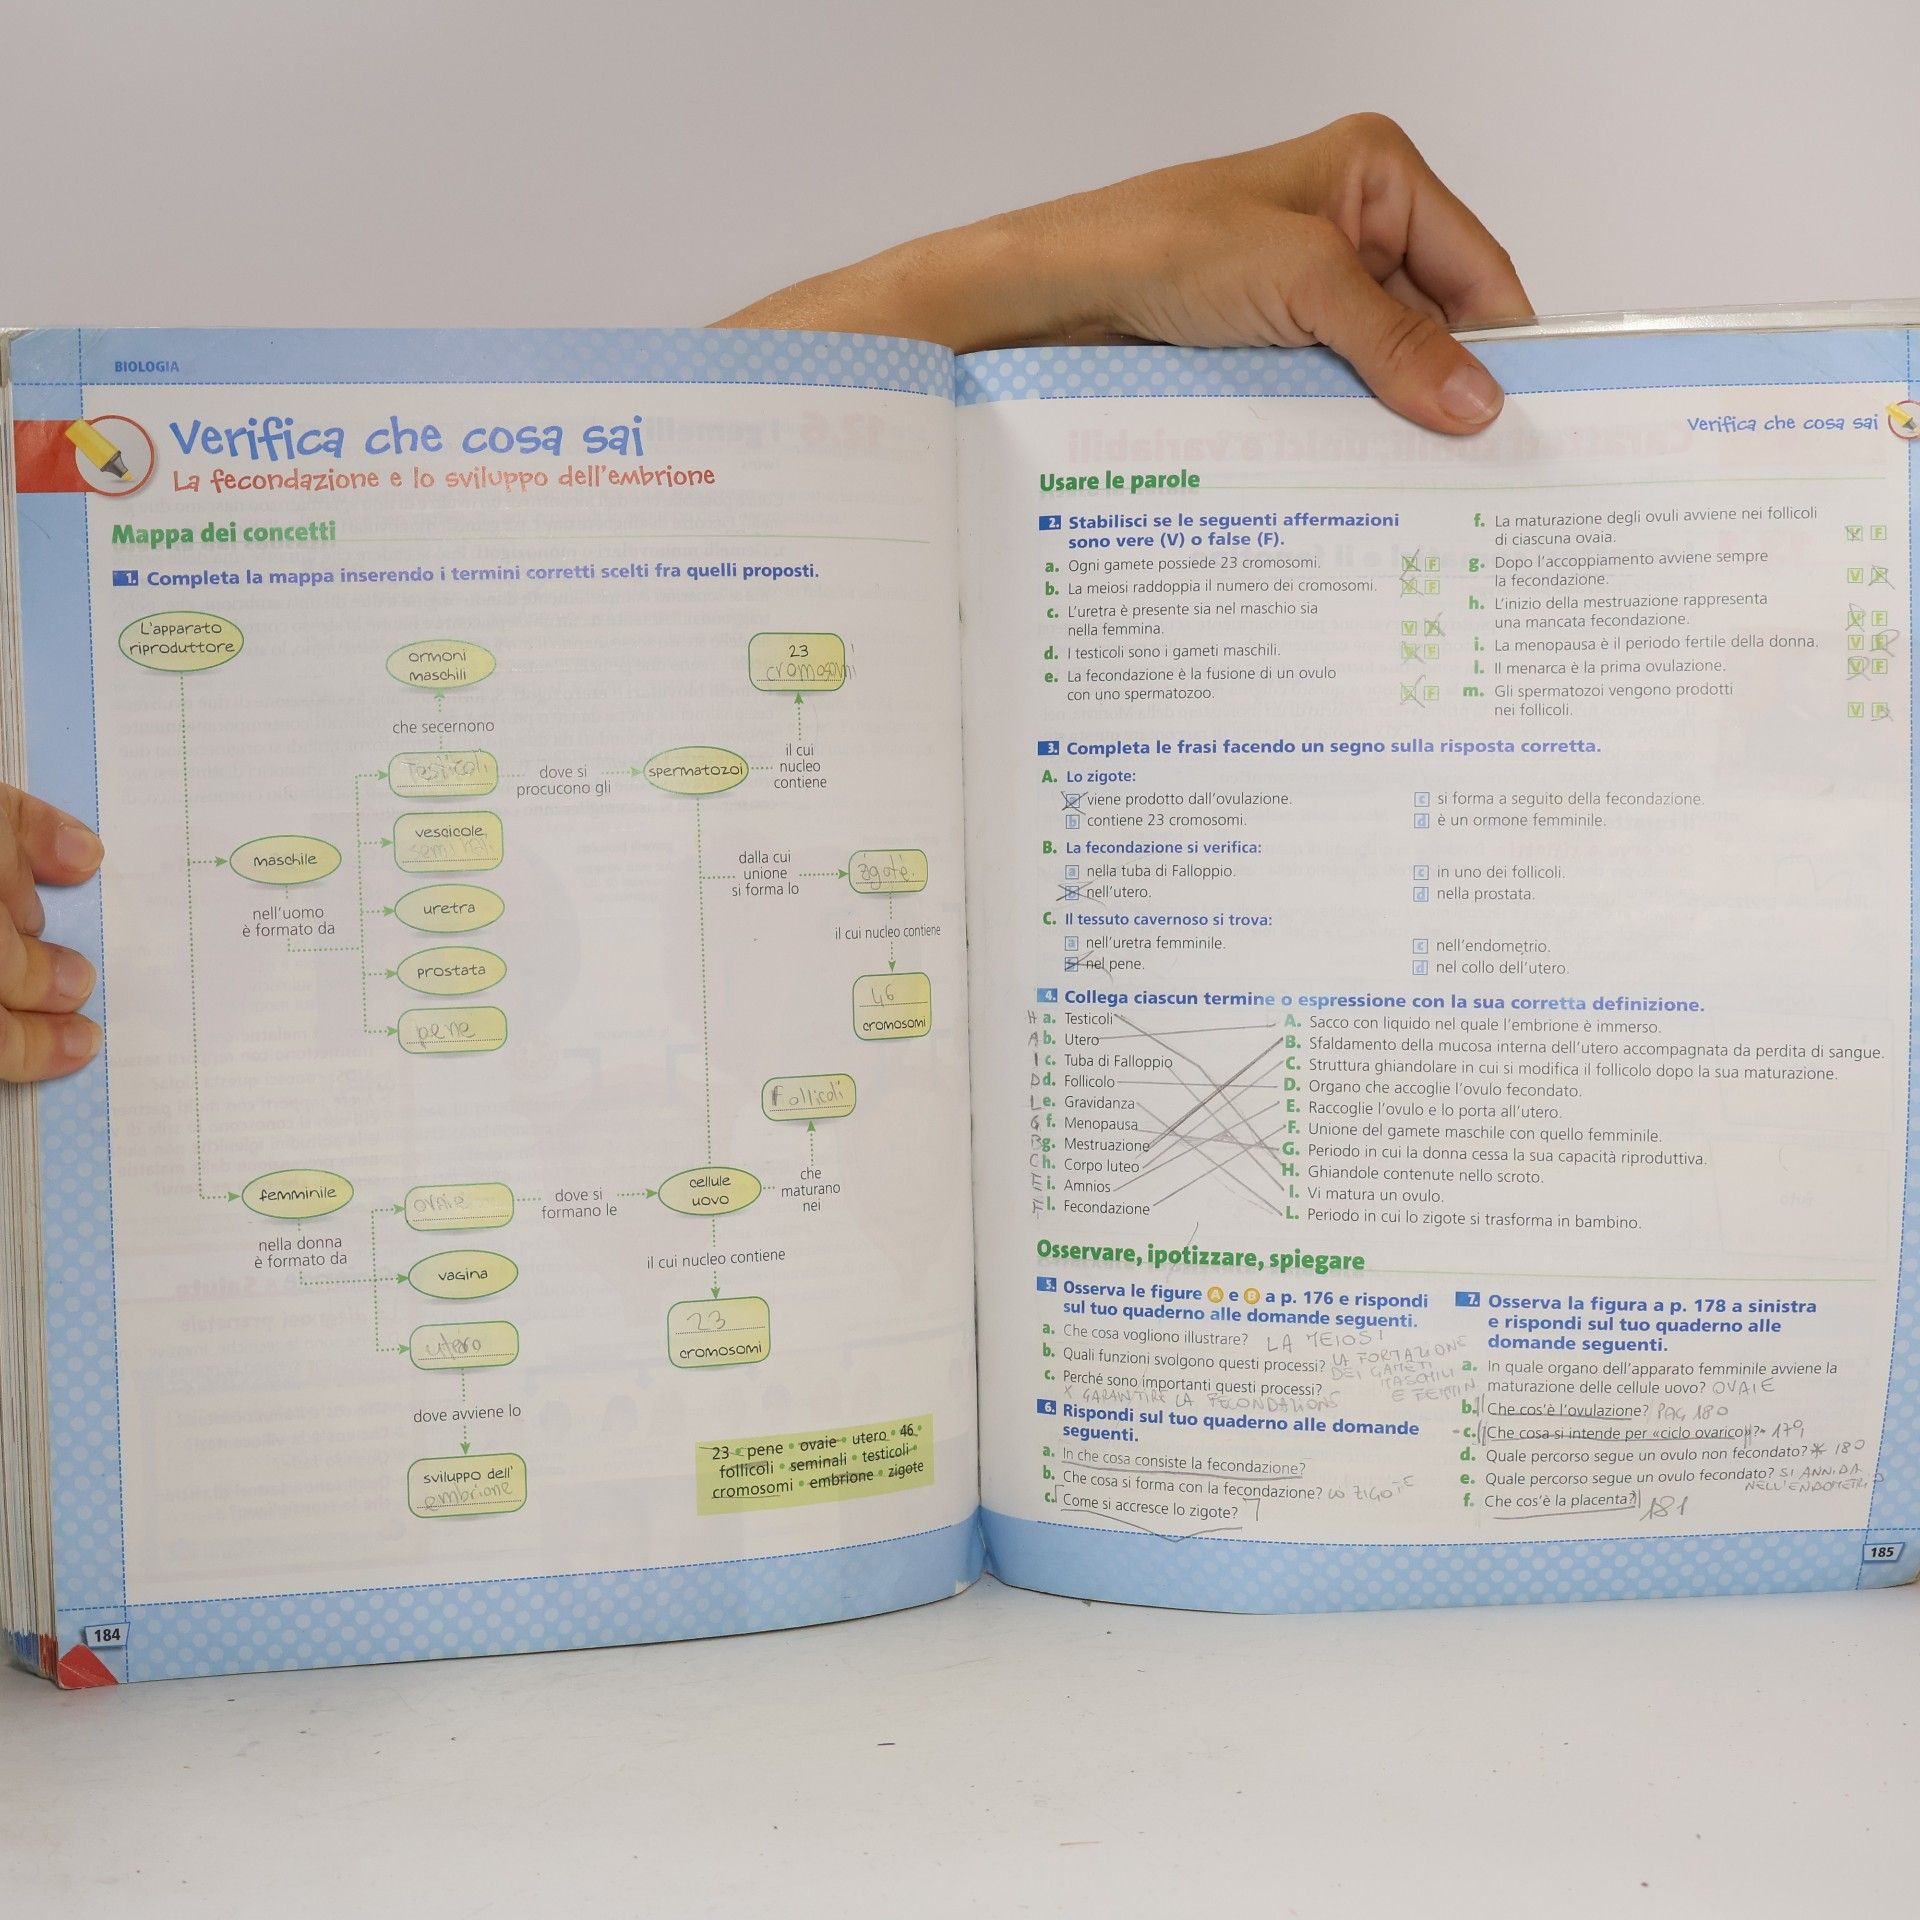 BIOLOGIA
Verifica che cosa sai
La fecondazione e lo sviluppo dell'embrione
Mappa dei concetti
1. Completa la mappa inserendo i termini corretti scelti fra quelli proposti.
L'apparato
riproduttore
ormoni
maschili
23
cromosomi
che secernono
testicoli
dove si
procucono gli
spermatozoi
il cui
nucleo
contiene
maschile
vescicole
seminali
dalla cui
unione
si forma lo
zigote
nell'uomo
è formato da
uretra
il cui nucleo contiene
prostata
46
cromosomi
pene
follicoli
femminile
ovaie
dove si
formano le
cellule
uovo
che
maturano
nei
nella donna
è formato da
vagina
il cui nucleo contiene
utero
23
cromosomi
dove avviene lo
sviluppo dell'
embrione
23 • pene • ovaie • utero • 46 •
follicoli • seminali • testicoli •
cromosomi • embrione • zigote
184
Verifica che cosa sai
Usare le parole
2. Stabilisci se le seguenti affermazioni
sono vere (V) o false (F).
a. Ogni gamete possiede 23 cromosomi. V F
b. La meiosi raddoppia il numero dei cromosomi. V F
c. L'uretra è presente sia nel maschio sia
nella femmina. V F
d. I testicoli sono i gameti maschili. V F
e. La fecondazione è la fusione di un ovulo
con uno spermatozoo. V F
f. La maturazione degli ovuli avviene nei follicoli
di ciascuna ovaia. V F
g. Dopo l'accoppiamento avviene sempre
la fecondazione. V F
h. L'inizio della mestruazione rappresenta
una mancata fecondazione. V F
i. La menopausa è il periodo fertile della donna. V F
l. Il menarca è la prima ovulazione. V F
m. Gli spermatozoi vengono prodotti
nei follicoli. V F
3. Completa le frasi facendo un segno sulla risposta corretta.
A. Lo zigote:
a viene prodotto dall'ovulazione.
b contiene 23 cromosomi.
c si forma a seguito della fecondazione.
d è un ormone femminile.
B. La fecondazione si verifica:
a nella tuba di Falloppio.
b nell'utero.
c in uno dei follicoli.
d nella prostata.
C. Il tessuto cavernoso si trova:
a nell'uretra femminile.
b nel pene.
c nell'endometrio.
d nel collo dell'utero.
4. Collega ciascun termine o espressione con la sua corretta definizione.
H a. Testicoli
A b. Utero
I c. Tuba di Falloppio
D d. Follicolo
L e. Gravidanza
G f. Menopausa
B g. Mestruazione
C h. Corpo luteo
E i. Amnios
F l. Fecondazione
A. Sacco con liquido nel quale l'embrione è immerso.
B. Sfaldamento della mucosa interna dell'utero accompagnata da perdita di sangue.
C. Struttura ghiandolare in cui si modifica il follicolo dopo la sua maturazione.
D. Organo che accoglie l'ovulo fecondato.
E. Raccoglie l'ovulo e lo porta all'utero.
F. Unione del gamete maschile con quello femminile.
G. Periodo in cui la donna cessa la sua capacità riproduttiva.
H. Ghiandole contenute nello scroto.
I. Vi matura un ovulo.
L. Periodo in cui lo zigote si trasforma in bambino.
Osservare, ipotizzare, spiegare
5. Osserva le figure A e B a p. 176 e rispondi
sul tuo quaderno alle domande seguenti.
a. Che cosa vogliono illustrare? LA MEIOSI
b. Quali funzioni svolgono questi processi? LA FORMAZIONE
DEI GAMETI
MASCHILI
E FEMMIN
c. Perché sono importanti questi processi?
X GARANTIRE LA FECONDAZIONS
6. Rispondi sul tuo quaderno alle domande
seguenti.
a. In che cosa consiste la fecondazione?
b. Che cosa si forma con la fecondazione? LO ZIGOTE
c. Come si accresce lo zigote?
7. Osserva la figura a p. 178 a sinistra
e rispondi sul tuo quaderno alle
domande seguenti.
a. In quale organo dell'apparato femminile avviene la
maturazione delle cellule uovo? OVAIE
b. Che cos'è l'ovulazione? PAG 180
c. Che cosa si intende per «ciclo ovarico»? 179
d. Quale percorso segue un ovulo non fecondato? * 180
e. Quale percorso segue un ovulo fecondato? SI ANNIDA
NELL'ENDOMETRIO
f. Che cos'è la placenta? 181
185